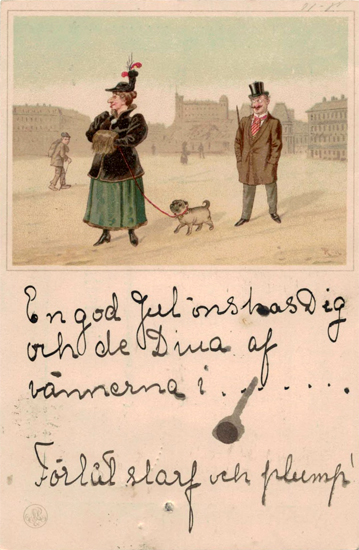 En god Jul önskas Dig
och de Dina af
vännerna i . . . . . . .
Förlåt slarf och plump!